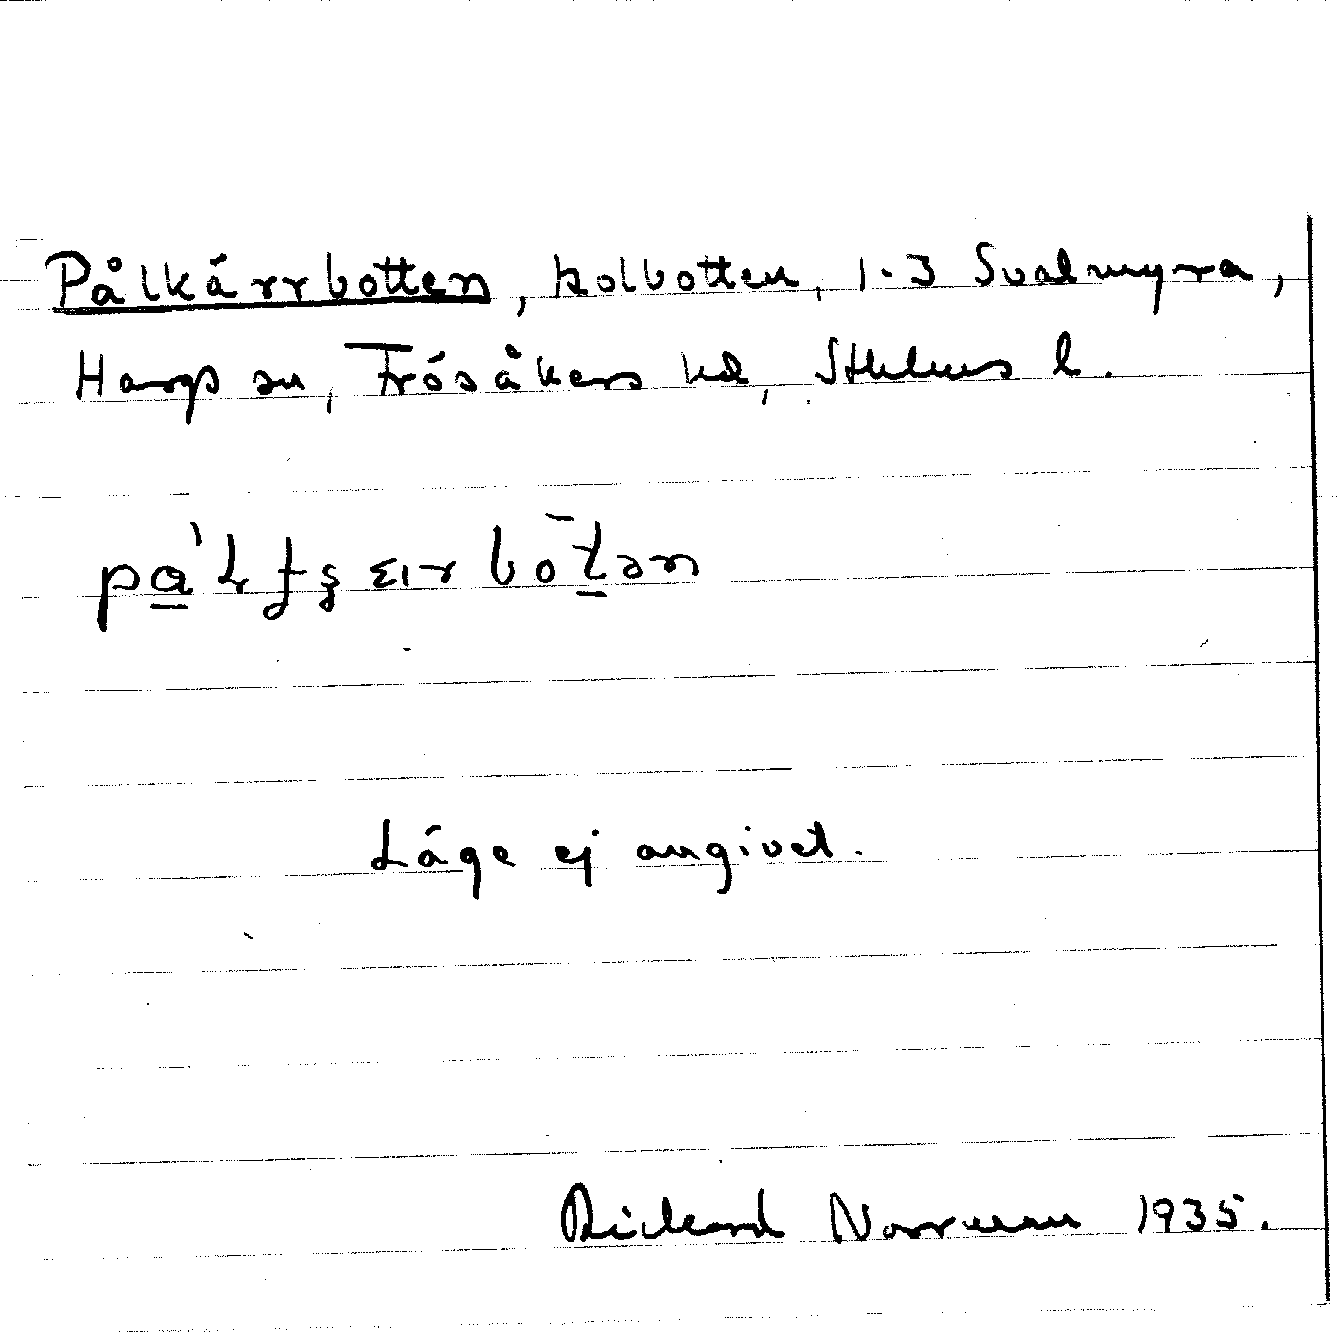 Pålkärrbotten, kolbotten, 1-3 Svalmyra,
Hargs sn, Frösåkers hd, Sthlms l.
Läge ej angivet.
Rickard Norrman 1935.